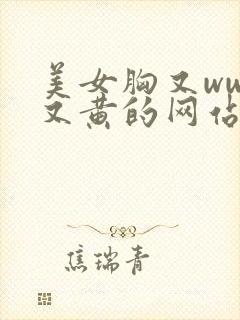 美女胸又ww
又黄的网站
焦瑞青